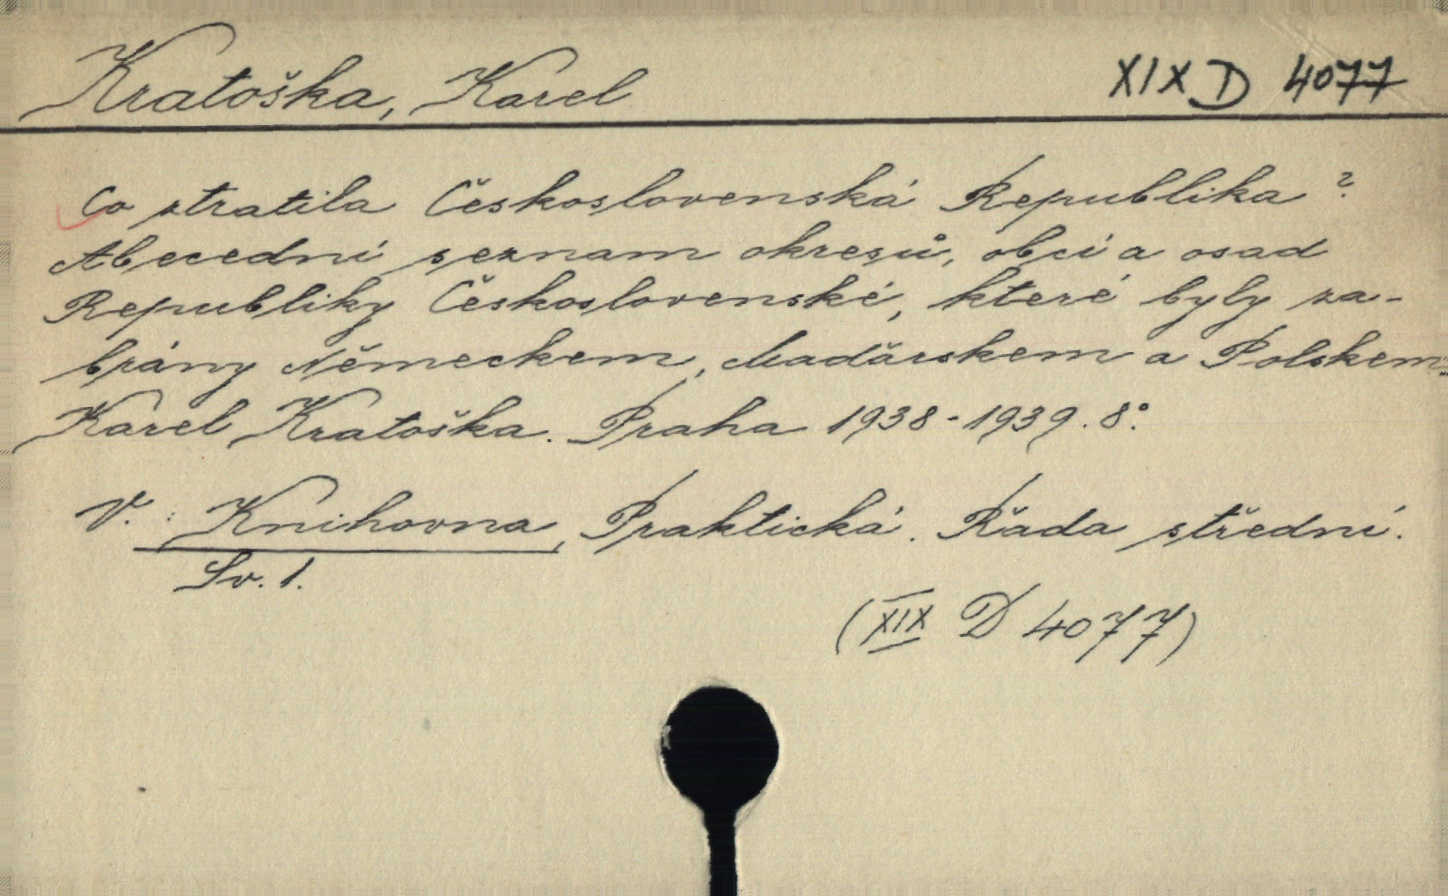 Kratoška, Karel XIX D 4077
Co ztratila Československá Republika?
Abecední seznam okresů, obcí a osad
Republiky Československé, které byly za-
brány Německem, Maďarskem a Polskem.
Karel Kratoška. Praha 1938-1939. 8°.
V.: Knihovna, Praktická. Řada střední.
Sv. 1.
(XIX D 4077)